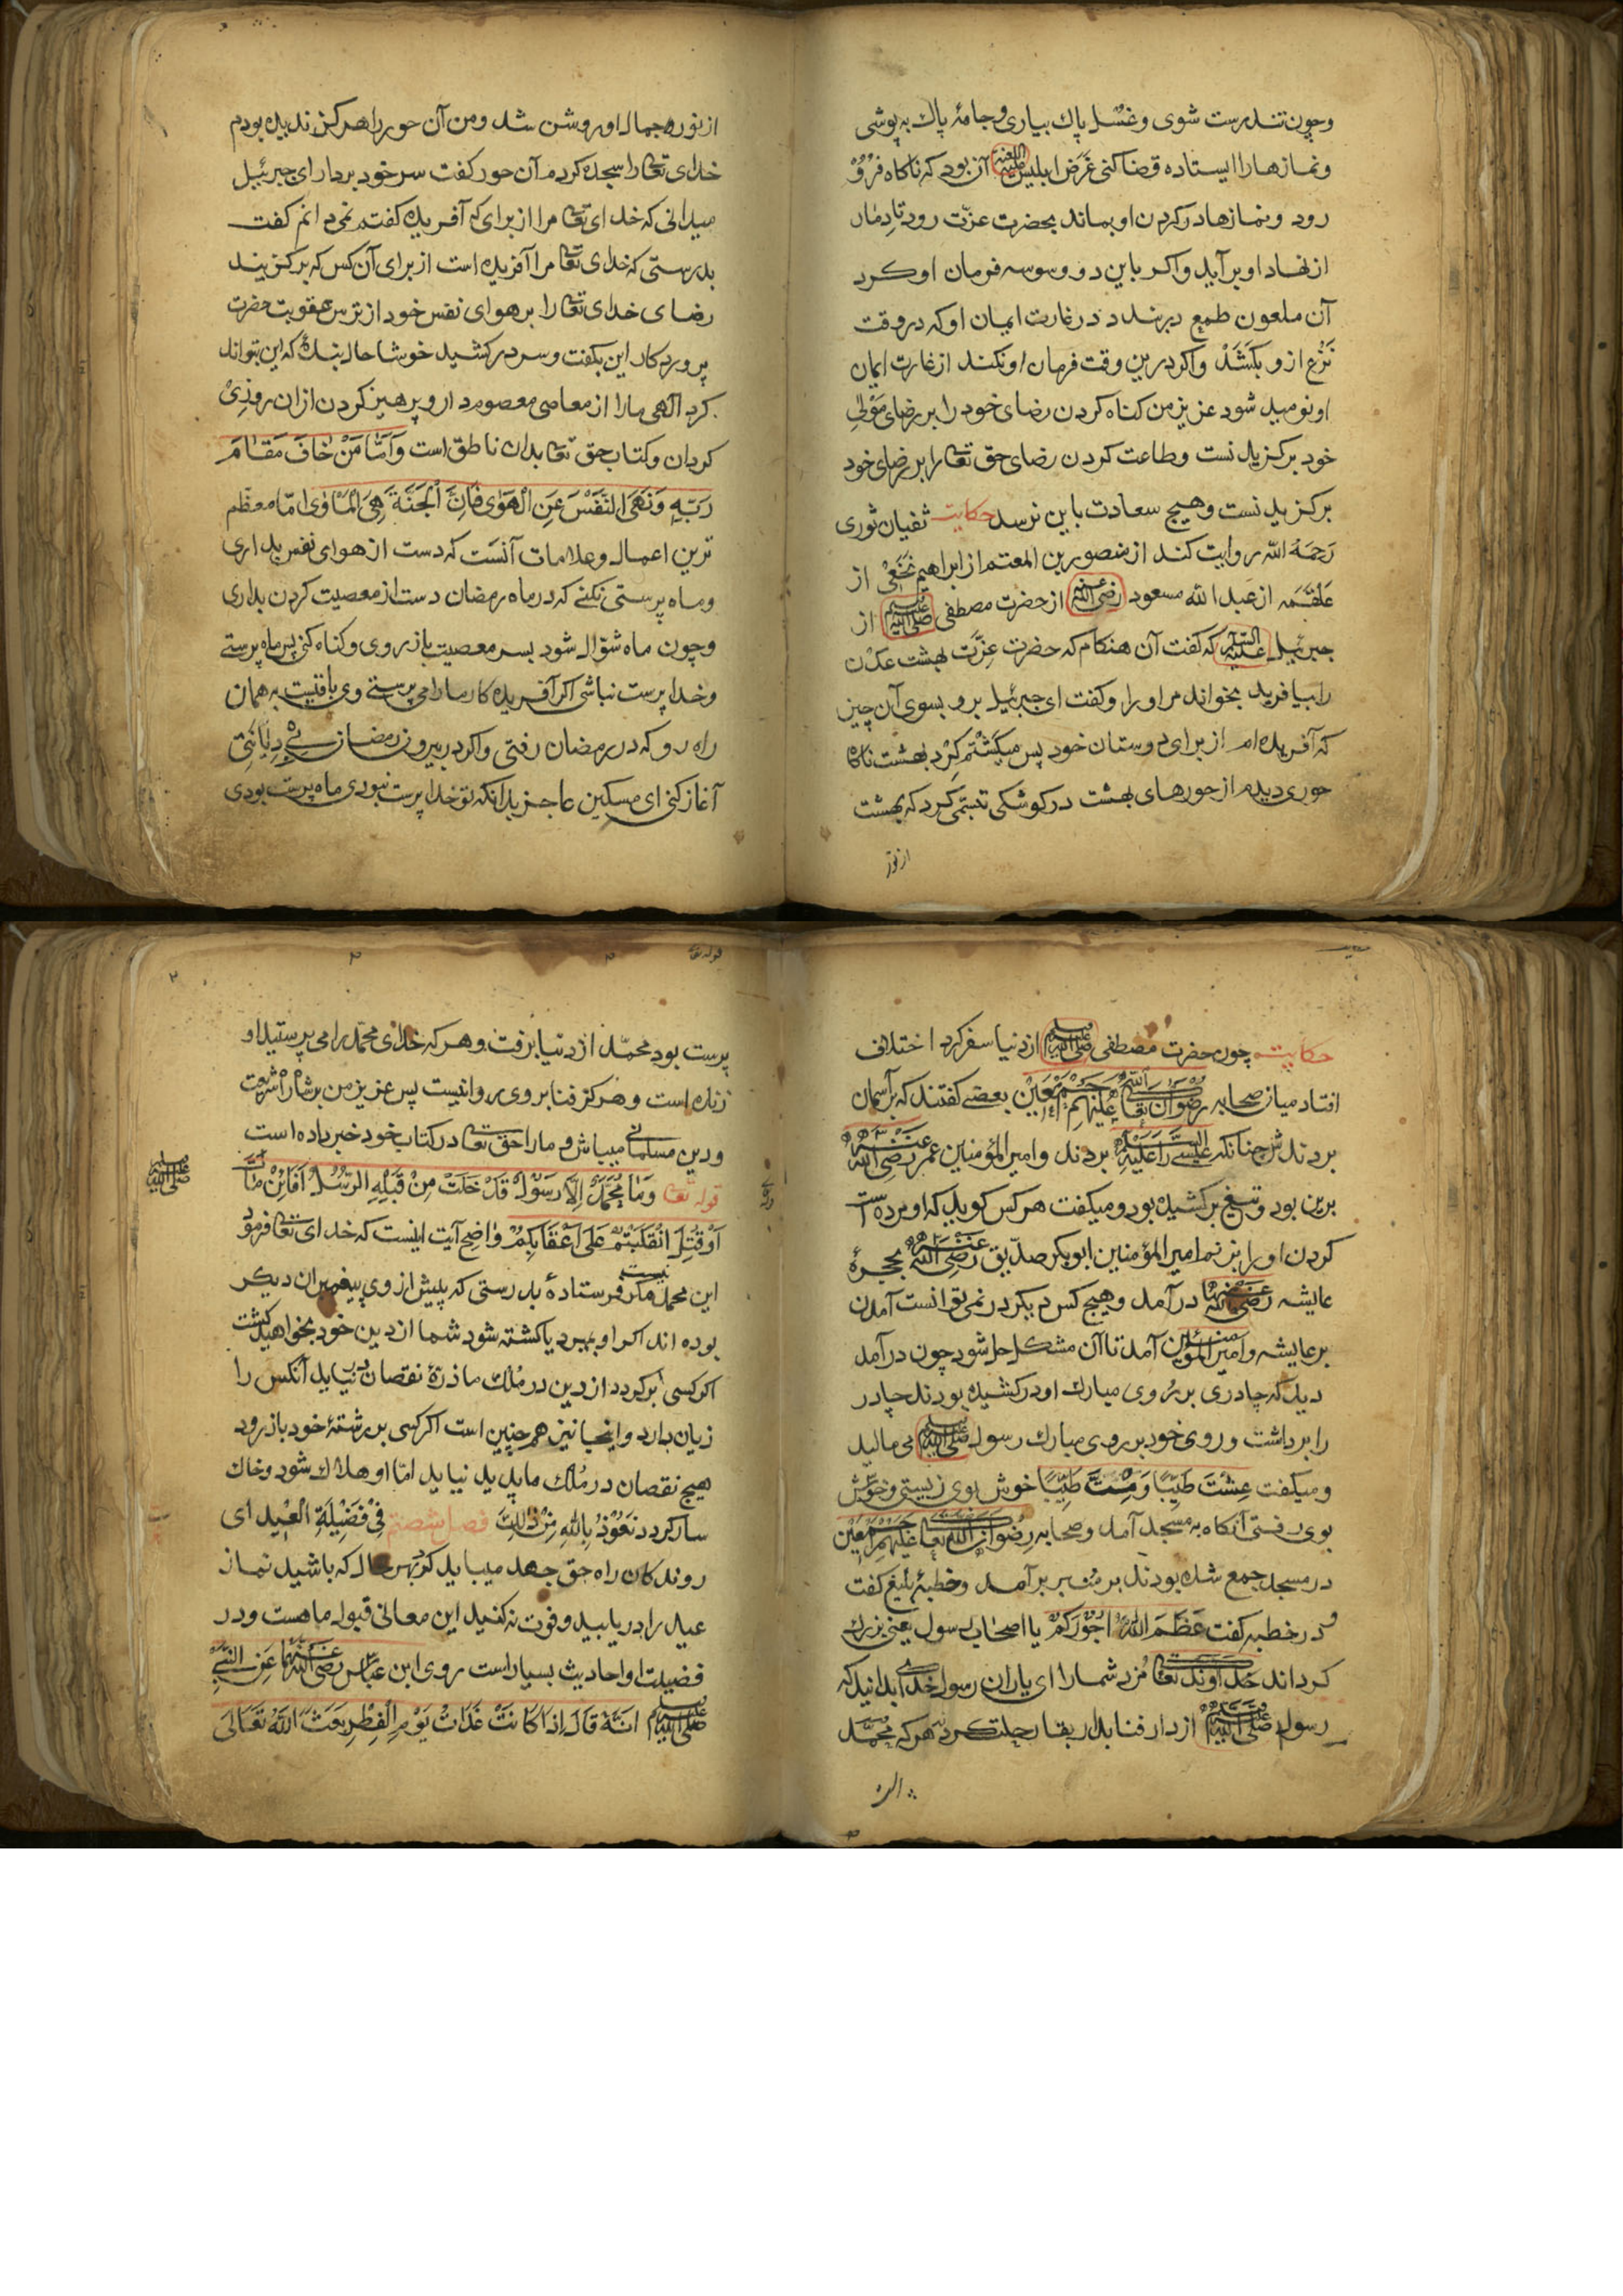 وچون تندرست شوی وغسل پاك بیاری وجامهٔ پاك به پوشی
ونمازهارا ایستاده قضا کنی غَرَض ابلیس اللعنة علیه آن بود که ناکاه فرو
رود ونمازها در کردن او بماند بحضرت عزّت رود تا دمار
از نهاد او برآید واکر باین دو وسوسه فرمان او کرد
آن ملعون طمع دربندد در غارت ایمان او که در وقت
نَزْع ازو بکَشَدْ واکر درین وقت فرمان او نکند از غارت ایمان
او نومید شود عزیز من کناه کردن رضای خود را بر رضای مَوْلیٰ
خود برکزیدنست وطاعت کردن رضای حق تعا را بر رضای خود
برکزیدنست وهیچ سعادت باین نرسد حکایت ثفیان ثوری
رَحِمَهُ اللّه روایت کند از منصور بن المعتم از ابراهیم نَخَعْی از
عَلْقَمَه از عبدالله مسعود رضی الله عنه از حضرت مصطفی صلی الله علیه وسلم از
جبرئیل علیه السلام که کفت آن هنکام که حضرت عِزَّت بهشت عدن
را بیافرید بخواند مرا ورا وکفت ای جبرئیل برو بسوی آن چیز
که آفریده ام از برای دوستان خود پس میکَشْتَم کِرْد بهشت ناکا
حوری دیدم از حورهای بهشت در کوشکی تبسّمی کرد که بهشت
از نور
از نور جمال او روشن شد ومن آن حور را هرکز ندیده بودم
خدای تعا را سجده کردم آن حور کفت سر خود بردار ای جبرئیل
میدانی که خدای تعا مرا از برای که آفریده کفتم نمی دانم کفت
بدرستی که خدای تعا مرا آفریده است از برای آن کس که برکزیند
رضای خدای تعا را بر هوای نفس خود از ترس عقوبت حضرت
پروردکار این بکفت وسر درکشید خوشا حال بندهٔ که این بتواند
کرد الٓهی مارا از معاصی معصوم دار وپرهیز کردن ازان روزِیْ
کردان وکتاب حق تعا بدان ناطق است وَاَمّا مَنْ خٰافَ مَقٰامَ
رَبِّهِ وَنَهَی النَّفْسَ عَنِ الْهَوٰی فَاِنَّ الْجَنَّةَ هِیَ الْمَاْوٰی امّا معظّم
ترین اعمال وعلامات آنست که دست از هوای نفس بداری
وماه پرستی نکنے که در ماه رمضان دست از معصیت کردن بداری
وچون ماه شوّال شود بسر معصیت باز روی وکناه کنی پس ماه پرستے
وخدا پرست نباشی اکر آفریدهٔ کار مارا می پرستے وی باقیست به همان
راه رو که در رمضان رفتی واکر در بیرون رمضان
آغاز کنی ای مسکین عاجز بدانکه تو خدا پرست نبودی ماه پرست بودی
حکایت چون حضرت مصطفی صلی الله علیه وسلم از دنیا سفر کرد اختلاف
افتاد میان صحابه رضوان الله تعا علیهم اجمعین بعضے کفتند که بر آسمان
بردندش چنانکه عیسی را علیه السلام بردند وامیر المؤمنین عمر رضی الله عنه
برین بود وتیغ برکشیده بود ومیکفت هر کس کوید که او مرده است
کردن او را بزنم امیر المؤمنین ابوبکر صدّیق رضی الله عنه بحجرهٔ
عایشه رضی الله عنها در آمد وهیچ کس دیکر در نمی توانست آمدن
بر عایشه وامیر المؤمنین آمد تا آن مشکل حل شود چون در آمد
دید که چادری بر رُوی مبارك او درکشیده بودند چادر
را برداشت وروی خود بر روی مبارك رسول صلی الله علیه وسلم می مالید
ومیکفت عِشْتَ طَیِّبًا وَمِتَّ طَیِّبًا خوش بوی زیستی وخوش
بوی رفتی آنکاه به مسجد آمد وصحابه رضوان الله تعا علیهم اجمعین
در مسجد جمع شده بودند بر منبر برآمد وخطبهٔ بلیغ کفت
ودر خطبه کفت عَظَّمَ اللّٰهُ اُجُوْرَکُمْ یا اصحاب رسول یعنی بزرك
کرداند خداوند تعا مُزد شمارا ای یاران رسول خدای بدانید که
رسول صلی الله علیه وسلم از دار فنا بدار بقا رحلت کرد هر که محمّد
قوله تعا
پرست بود محمّد از دنیا برفت وهر که خدای محمّد را می پرستید او
زنده است وهرکز فنا بر وی روا نیست پس عزیز من بر شاراه شریعت
ودین مسلمانی میباش ومارا حق تعا در کتاب خود خبر داده است
قوله تعا وَمٰا مُحَمَّدٌ اِلَّا رَسُوْلٌ قَدْ خَلَتْ مِنْ قَبْلِهِ الرُّسُلُ اَفَائِنْ مٰاتَ
اَوْقُتِلَ انْقَلَبْتُمْ عَلٰی اَعْقَابِکُمْ واضح آیت اینست که خدای تعا فرمود
این محمد نیست مکر فرستادهٔ بدرستی که پیش از وی پیغمبران دیکر
بوده اند اکر او بمیرد یا کشته شود شما از دین خود بخواهید کشت
اکر کسی برکردد از دین در مُلك ما ذرّهٔ نقصان در نیاید آنکس را
زیان دارد واینجا نیز هم چنین است اکر کسی بر رشتهٔ خود باز رود
هیچ نقصان در مُلك ما پدید نیاید امّا او هلاك شود وخاك
سار کردد نَعُوْذُ بِاللّٰهِ مِنْ ذٰلِكَ فصل شصتم فِیْ فَضِیْلَةِ الْعِیْدِ ای
روندکان راه حق جهد میباید کرد بهر حال که باشید نماز
عید را دریابید وفوت نه کنید این معانی قبول ماهست ودر
فضیلت او احادیث بسیار است روی ابن عبّاس رضی الله عنهما عَنِ النَّبِیِّ
صلی الله علیه وسلم اَنَّهُ قَالَ اِذَا کَانَتْ غَدَاتُ یَوْمِ الْفِطْرِ بَعَثَ اللّٰهُ تَعَالیٰ
صلی الله علیه وسلم